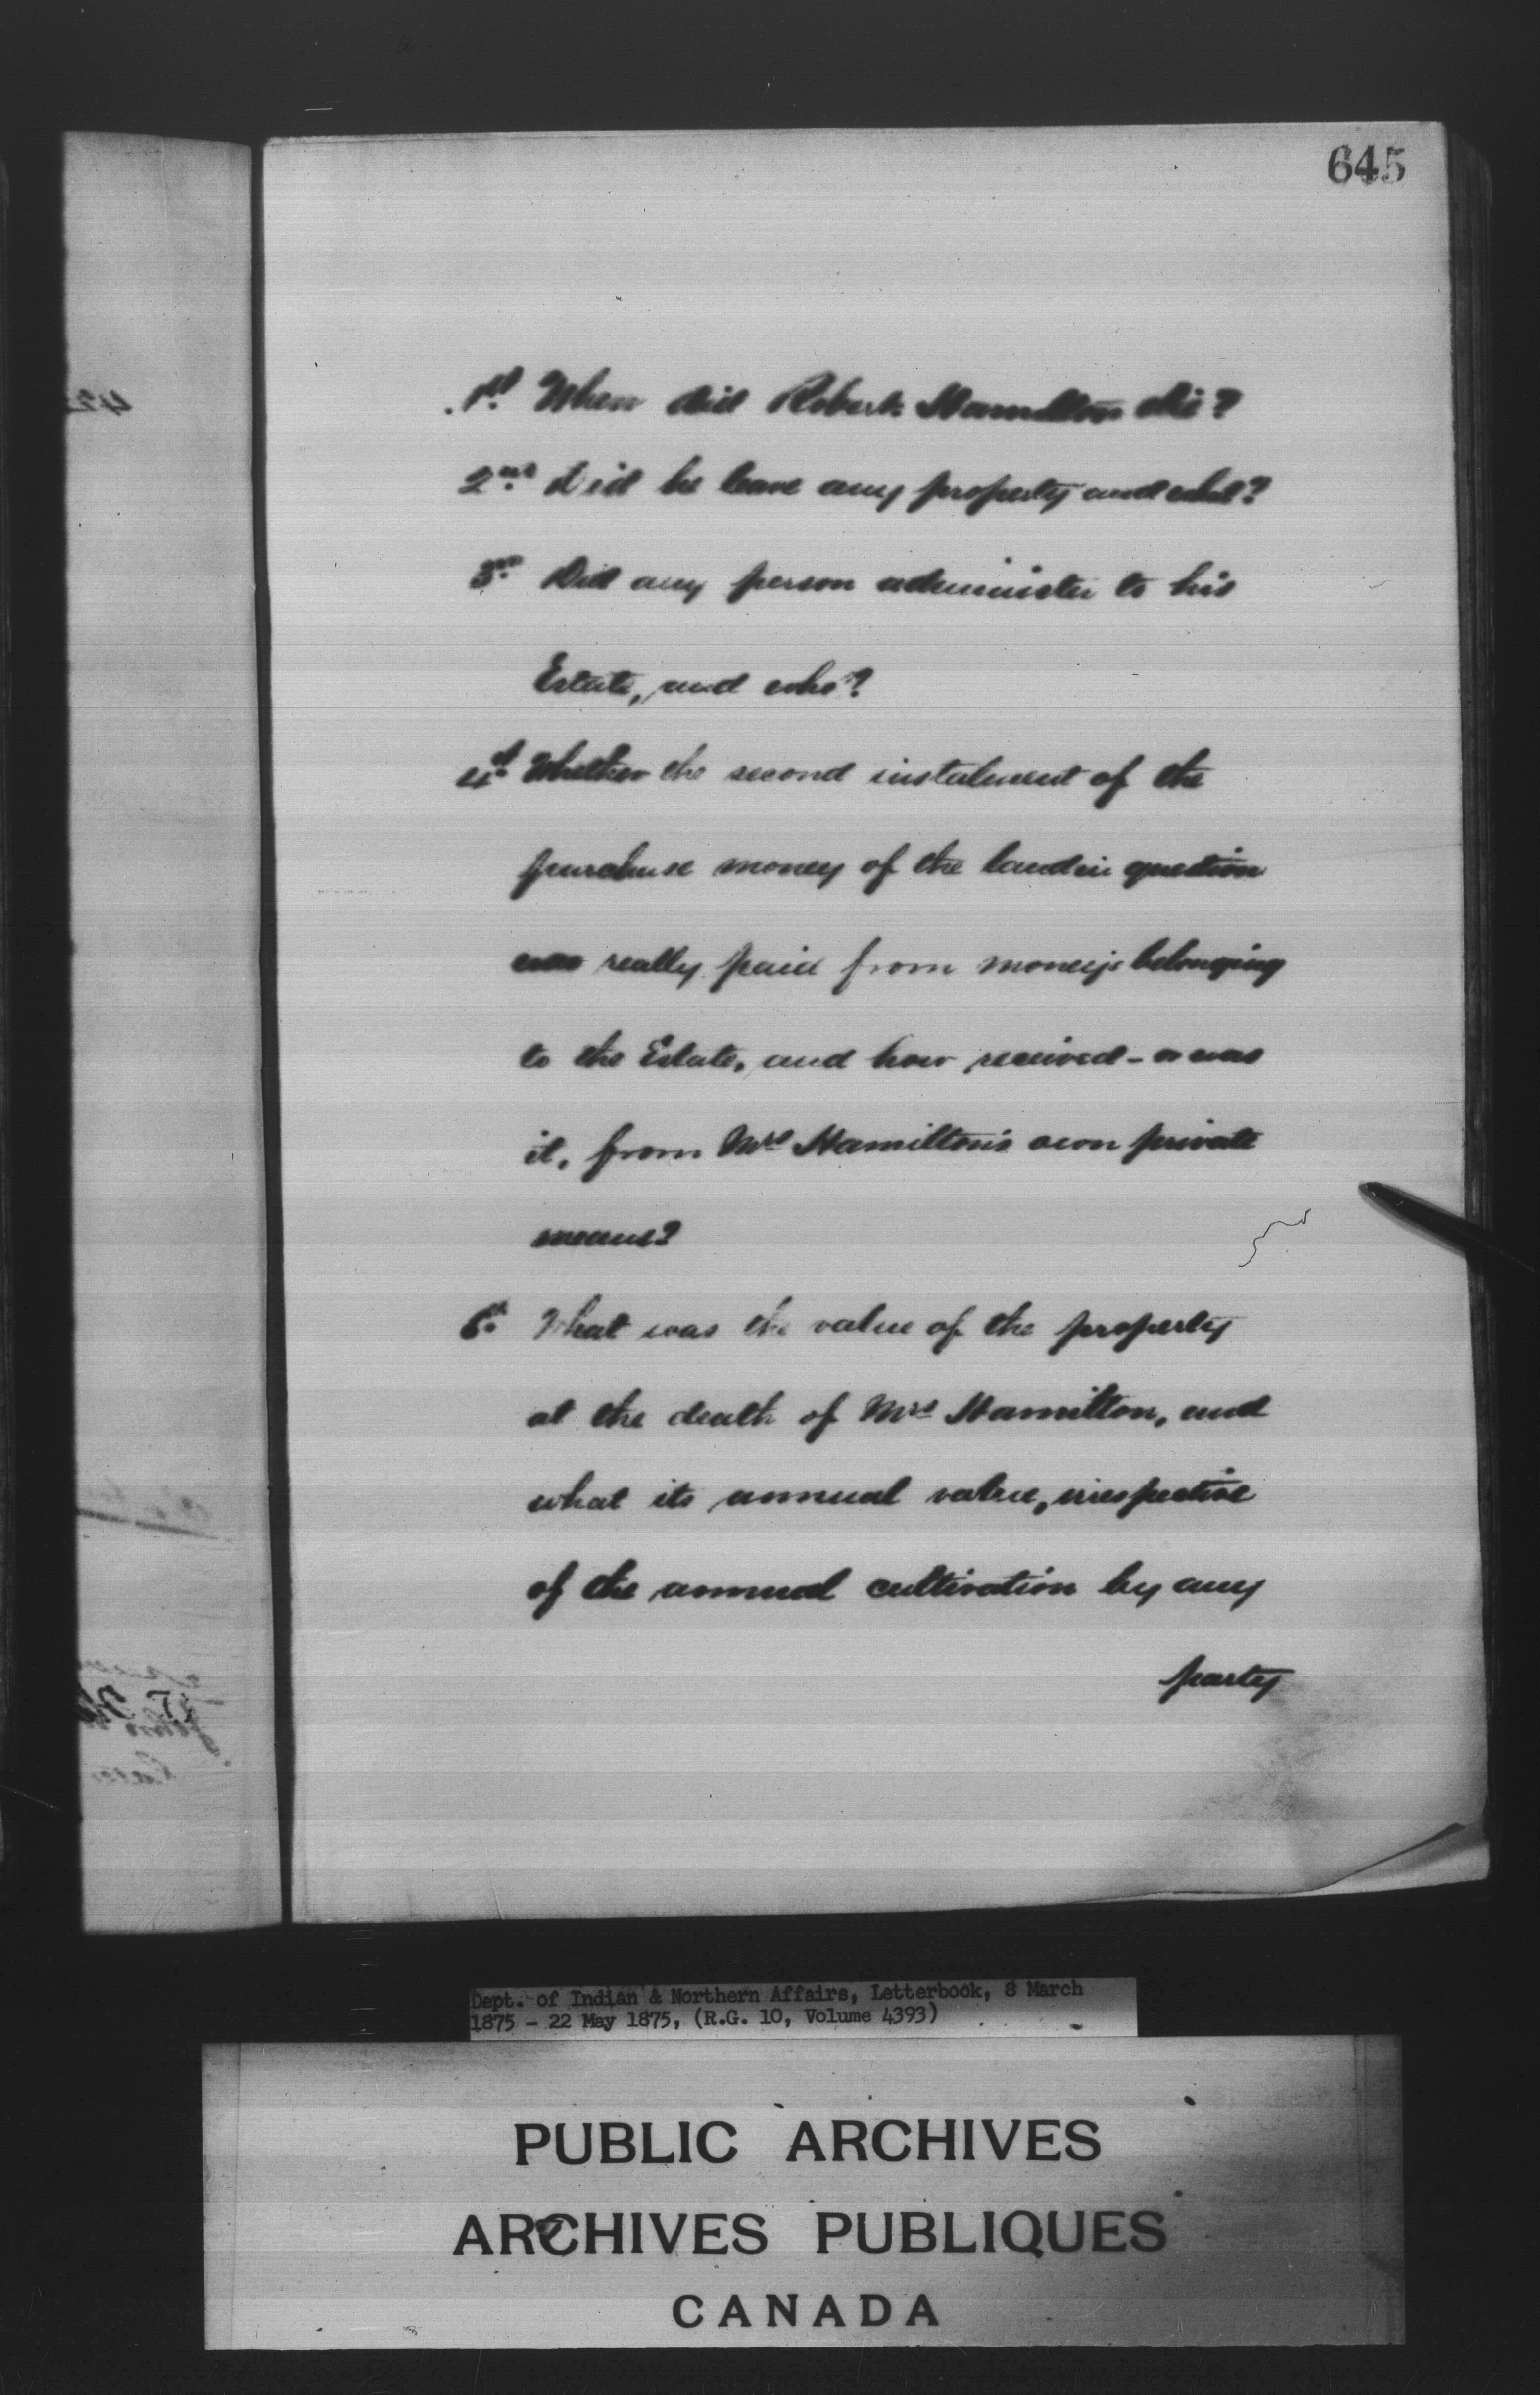 645
1st. When did Robert Hamilton die?
2nd. Did he leave any property and what?
3rd. Did any person administer to his
Estate, and who?
4th. Whether the second instalment of the
purchase money of the land in question
was really paid from moneys belonging
to the Estate, and how received - or was
it, from Mrs Hamilton's own private
means?
5th. What was the value of the property
at the death of Mrs Hamilton, and
what its annual value, irrespective
of the annual cultivation by any
party
Dept. of Indian & Northern Affairs, Letterbook, 8 March
1875 - 22 May 1875, (R.G. 10, Volume 4393)
PUBLIC ARCHIVES
ARCHIVES PUBLIQUES
CANADA